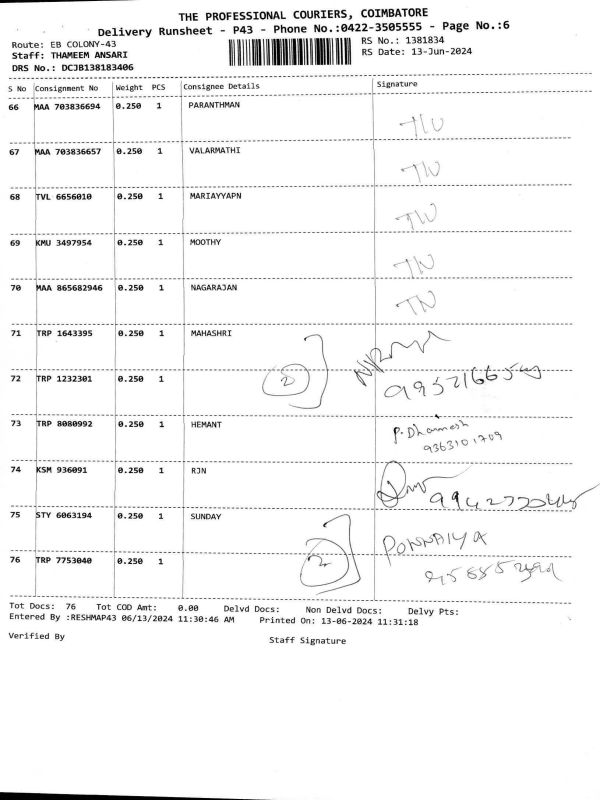 THE PROFESSIONAL COURIERS, COIMBATORE
Delivery Runsheet - P43 - Phone No.:0422-3505555 - Page No.:6
Route: EB COLONY-43
RS No.: 1381834
Staff: THAMEEM ANSARI
RS Date: 13-Jun-2024
DRS No.: DCJB138183406
S No Consignment No Weight PCS Consignee Details Signature
66 MAA 703836694 0.250 1 PARANTHMAN
67 MAA 703836657 0.250 1 VALARMATHI
68 TVL 6656010 0.250 1 MARIAYYAPN
69 KMU 3497954 0.250 1 MOOTHY
70 MAA 865682946 0.250 1 NAGARAJAN
71 TRP 1643395 0.250 1 MAHASHRI
72 TRP 1232301 0.250 1 2
73 TRP 8080992 0.250 1 HEMANT P. Dharnesh
9363101709
74 KSM 936091 0.250 1 RJN
75 STY 6063194 0.250 1 SUNDAY PONNAIYA
76 TRP 7753040 0.250 1 2
Tot Docs: 76 Tot COD Amt: 0.00 Delvd Docs: Non Delvd Docs: Delvy Pts:
Entered By :RESHMAP43 06/13/2024 11:30:46 AM Printed On: 13-06-2024 11:31:18
Verified By Staff Signature